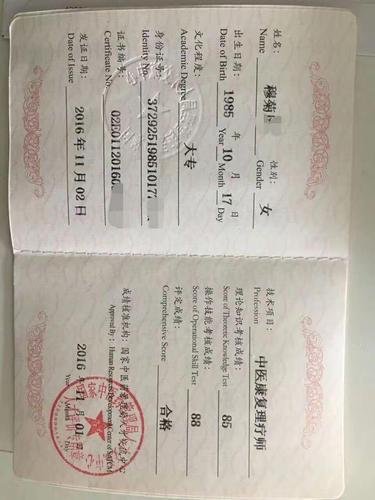 姓名：穆菊 性别：女
Name Gender
出生日期：1985 年 10 月 17 日
Date of Birth Year Month Day
文化程度：大专
Academic Degree
身份证号：37292519851017
Identity No.
证书编号：02E01120160
Certificate No.
发证日期：2016 年 11 月 02 日
Date of Issue
技术项目：中医康复理疗师
Profession
理论知识考核成绩：85
Score of Theoretic Knowledge Test
操作技能考核成绩：88
Score of Operational Skill Test
评定成绩：合格
Comprehensive Score
成绩核准机构：国家中医药管理局人才交流中心
Approved by: Human Resources Development Center of SATCM
2016 年 11 月 01 日
Year Month Day